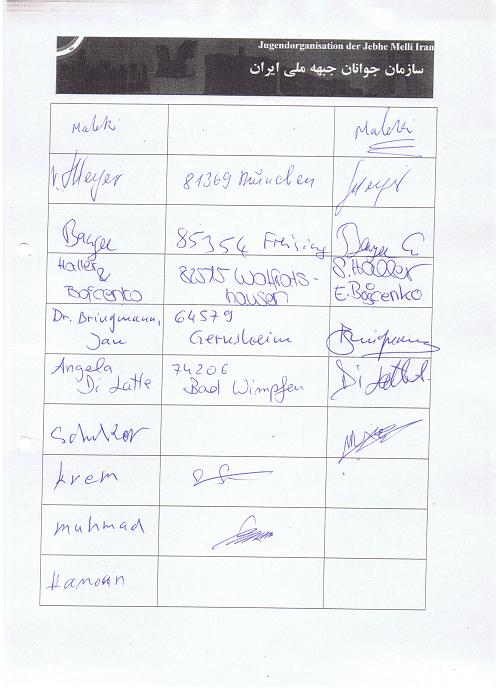 Jugendorganisation der Jebhe Melli Iran
سازمان جوانان جبهه ملی ایران
Maleki Maleki
Meyer 81369 München
85354 Freising
Haller & Bojcenko 82515 Wolfrats-hausen S. Haller E. Bojcenko
Dr. Bringmann, Jan 64579 Gernsheim
Angela Di Latte 74206 Bad Wimpfen
krem
muhmad